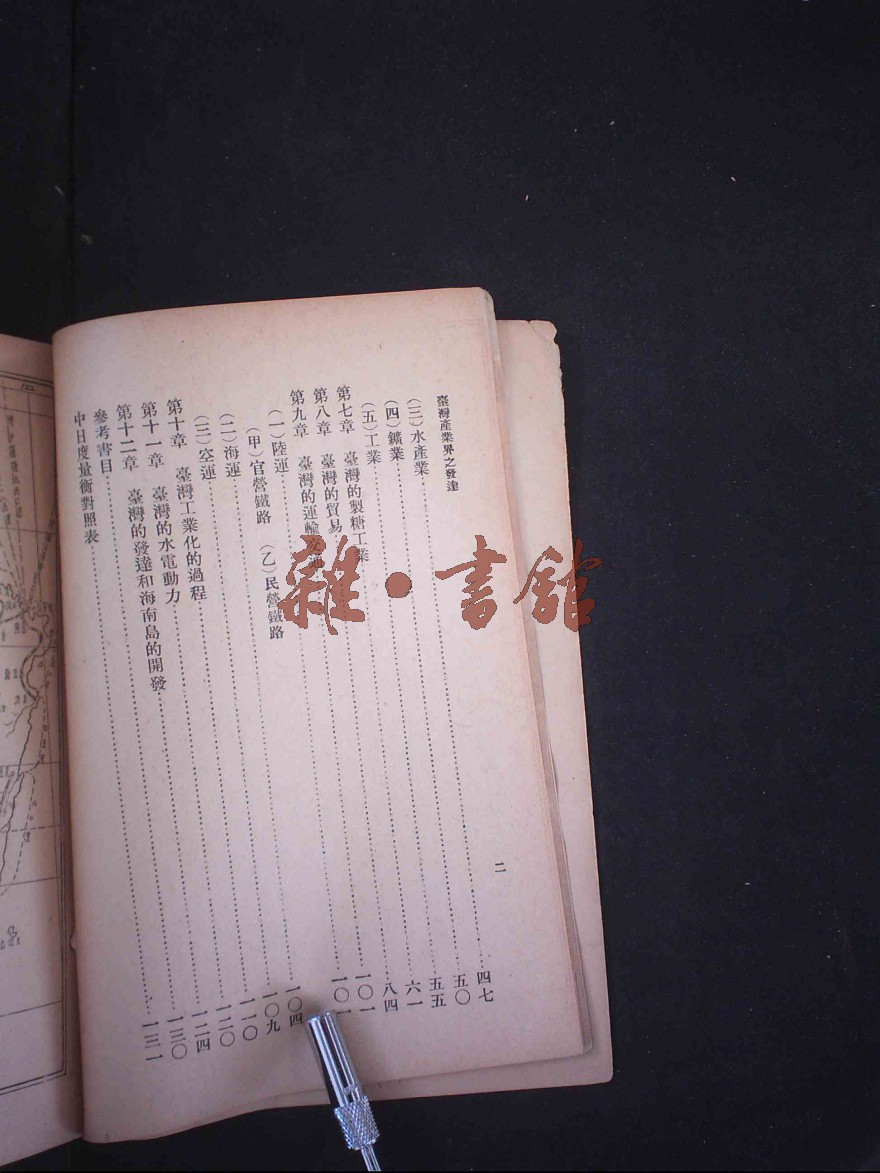 臺灣產業界之發達
二
(三)水產業……四七
(四)鑛業……五〇
(五)工業……五五
第七章 臺灣的製糖工業……六一
第八章 臺灣的貿易……八四
第九章 臺灣的運輸交通……一〇一
(一)陸運……一〇一
(甲)官營鐵路 (乙)民營鐵路
(二)海運……一〇四
(三)空運……一〇九
第十章 臺灣工業化的過程……一一〇
第十一章 臺灣的水電動力……一二〇
第十二章 臺灣的發達和海南島的開發……一二四
參考書目……一三〇
中日度量衡對照表……一三一
雜·書館